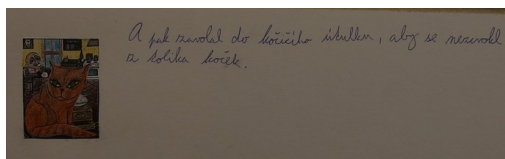 A pak zavolal do kočičího útulku, aby se nezcvokl
z tolika koček.